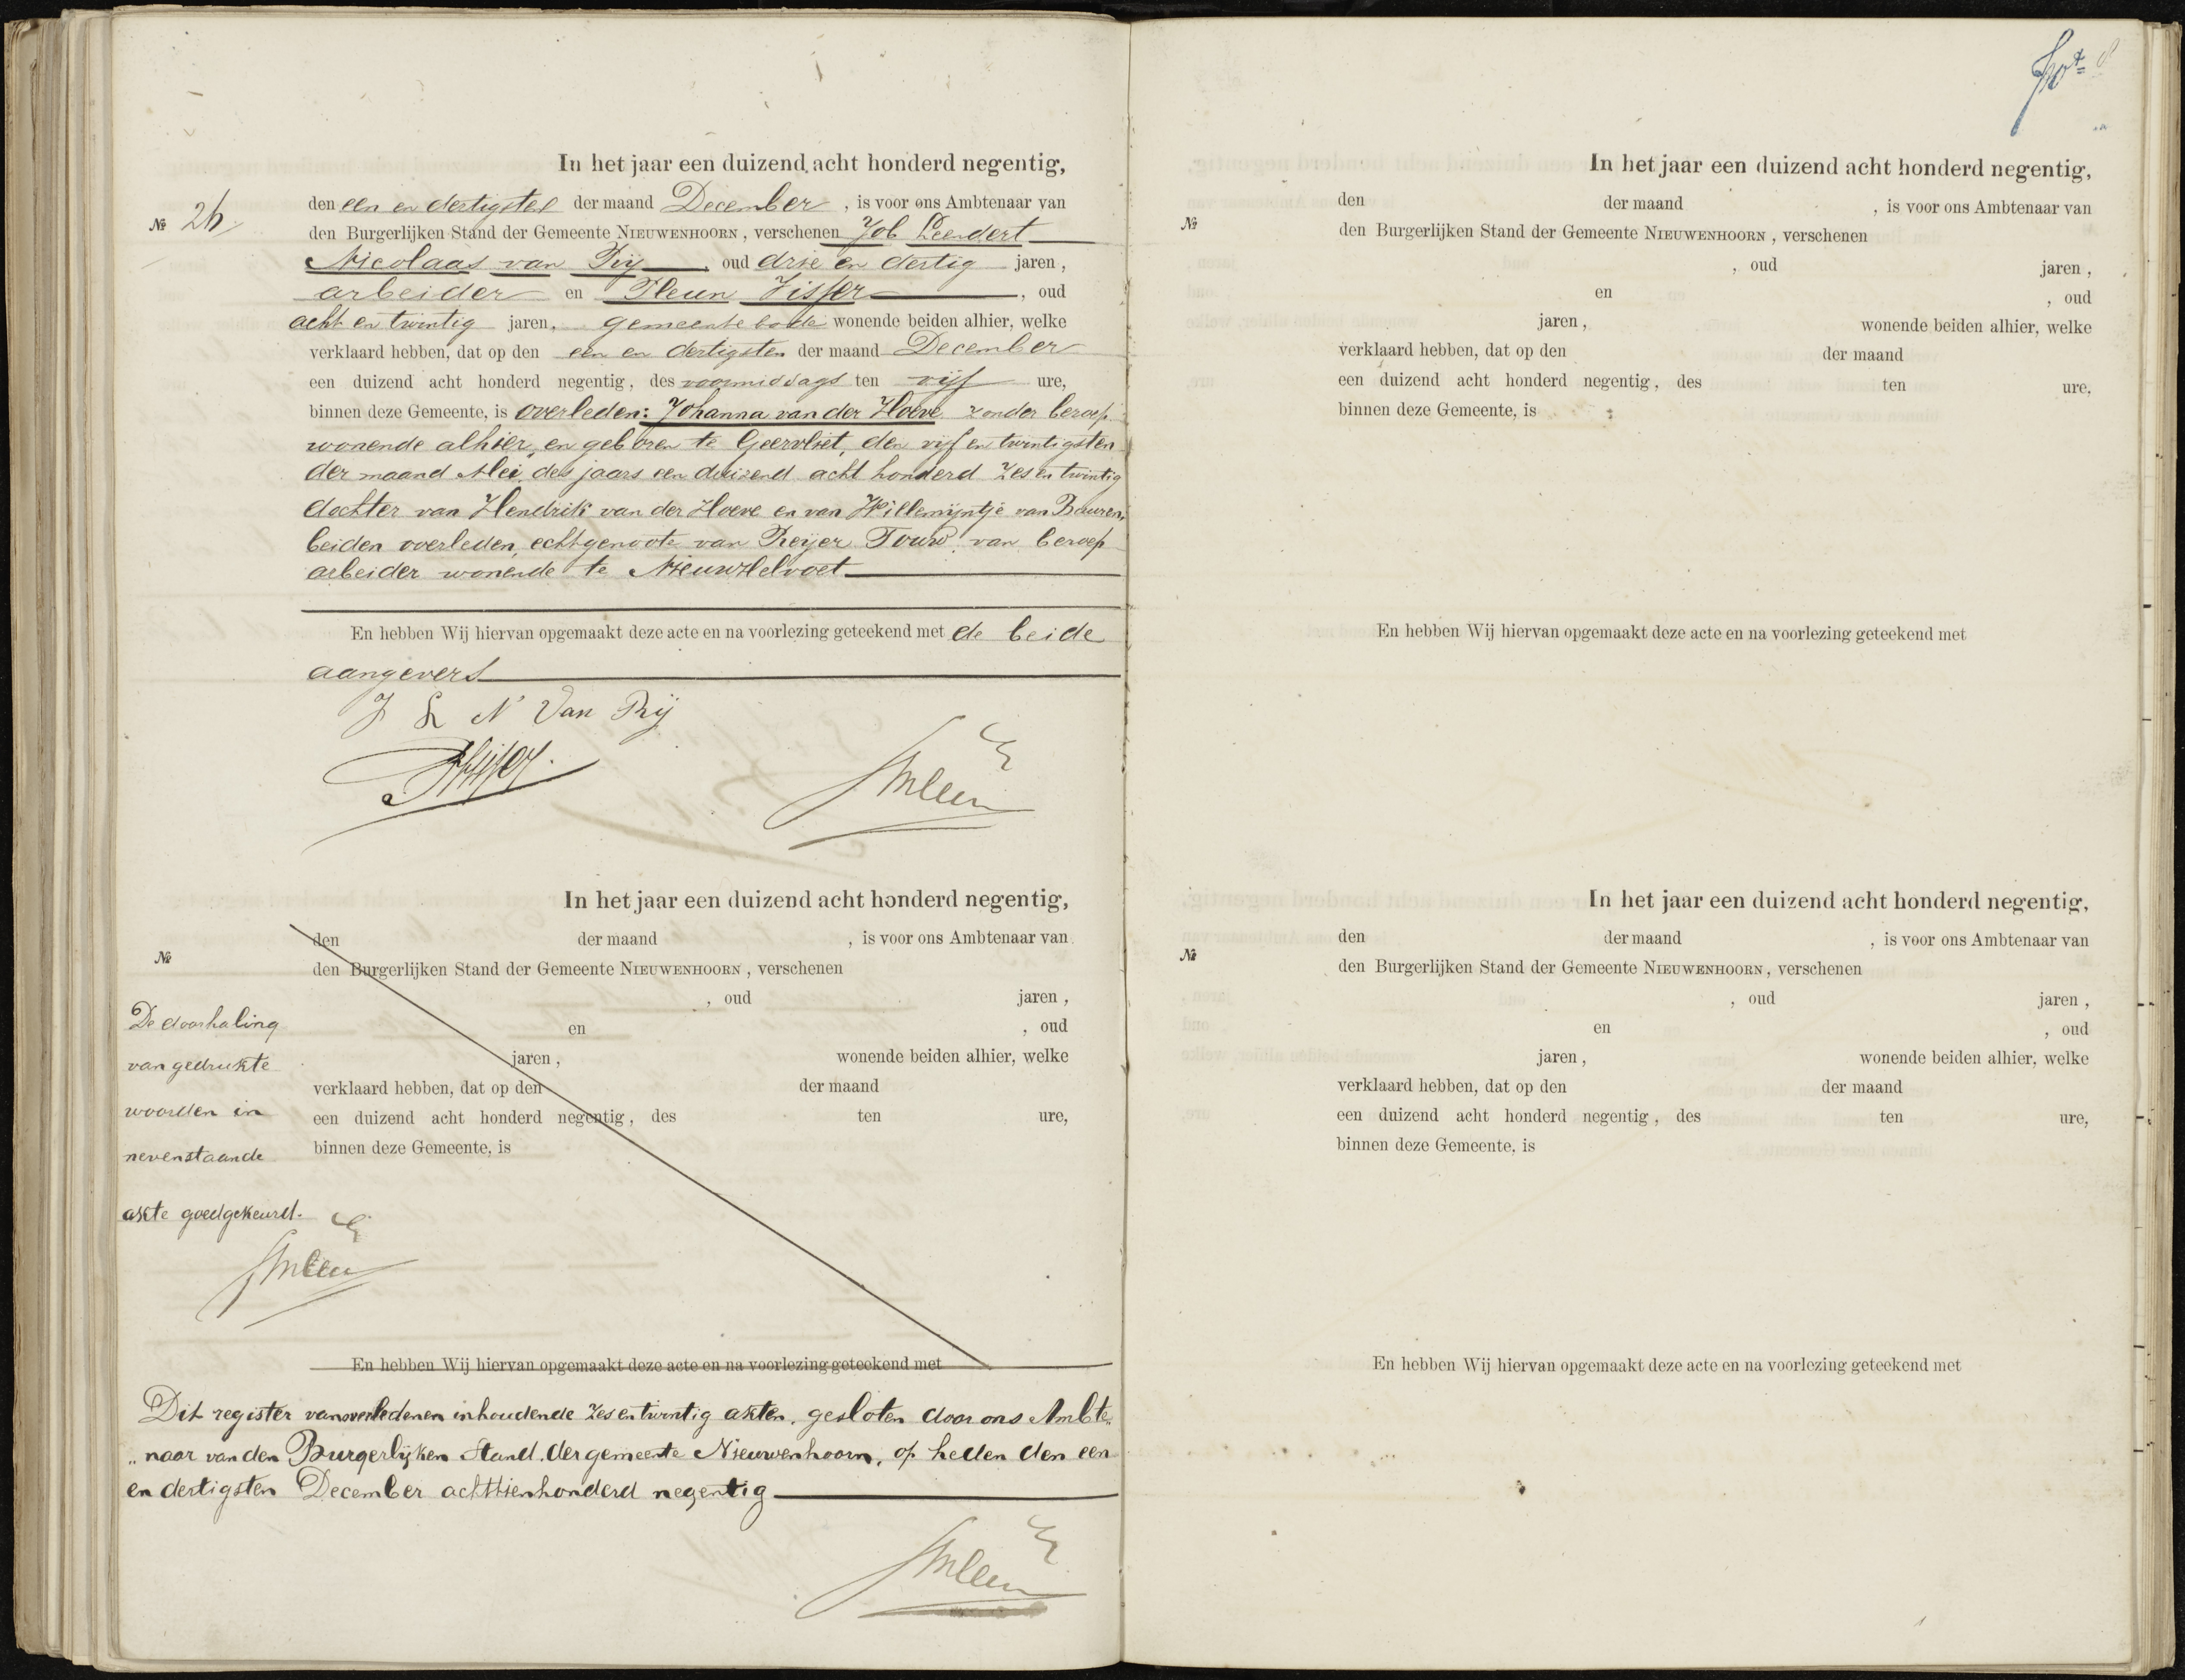 In het jaar een duizend acht honderd negentig,
№ 26
den een en dertigsten der maand December, is voor ons Ambtenaar van
den Burgerlijken Stand der Gemeente Nieuwenhoorn, verschenen Job Leendert
Nicolaas van Rij, oud drie en dertig jaren,
arbeider en Pleun Visser, oud
acht en twintig jaren, gemeente bode wonende beiden alhier, welke
verklaard hebben, dat op den een en dertigsten der maand December
een duizend acht honderd negentig, des voormiddags ten vijf ure,
binnen deze Gemeente, is overleden: Johanna van der Hoeve zonder beroep
wonende alhier, en geboren te Geervliet, den vijf en twintigsten
der maand Mei des jaars een duizend acht honderd zes en twintig
dochter van Hendrik van der Hoeve en van Willemijntje van Buuren,
beiden overleden, echtgenoote van Reijer Touw, van beroep
arbeider wonende te Nieuw Helvoet
En hebben Wij hiervan opgemaakt deze acte en na voorlezing geteekend met de beide
aangevers
J L N Van Rij
In het jaar een duizend acht honderd negentig,
№
den der maand , is voor ons Ambtenaar van
den Burgerlijken Stand der Gemeente Nieuwenhoorn, verschenen
, oud jaren,
en , oud
jaren, wonende beiden alhier, welke
verklaard hebben, dat op den der maand
een duizend acht honderd negentig, des ten ure,
binnen deze Gemeente, is
De doorhaling
van gedrukte
woorden in
nevenstaande
akte goedgekeurd.
En hebben Wij hiervan opgemaakt deze acte en na voorlezing geteekend met
Dit register van overledenen inhoudende zes en twintig akten, gesloten door ons Ambte„
„naar van den Burgerlijken Stand der gemeente Nieuwenhoorn, op heden den een
en dertigsten December achttienhonderd negentig
In het jaar een duizend acht honderd negentig,
№
den der maand , is voor ons Ambtenaar van
den Burgerlijken Stand der Gemeente Nieuwenhoorn, verschenen
, oud jaren,
en , oud
jaren, wonende beiden alhier, welke
verklaard hebben, dat op den der maand
een duizend acht honderd negentig, des ten ure,
binnen deze Gemeente, is
En hebben Wij hiervan opgemaakt deze acte en na voorlezing geteekend met
In het jaar een duizend acht honderd negentig,
№
den der maand , is voor ons Ambtenaar van
den Burgerlijken Stand der Gemeente Nieuwenhoorn, verschenen
, oud jaren,
en , oud
jaren, wonende beiden alhier, welke
verklaard hebben, dat op den der maand
een duizend acht honderd negentig, des ten ure,
binnen deze Gemeente, is
En hebben Wij hiervan opgemaakt deze acte en na voorlezing geteekend met